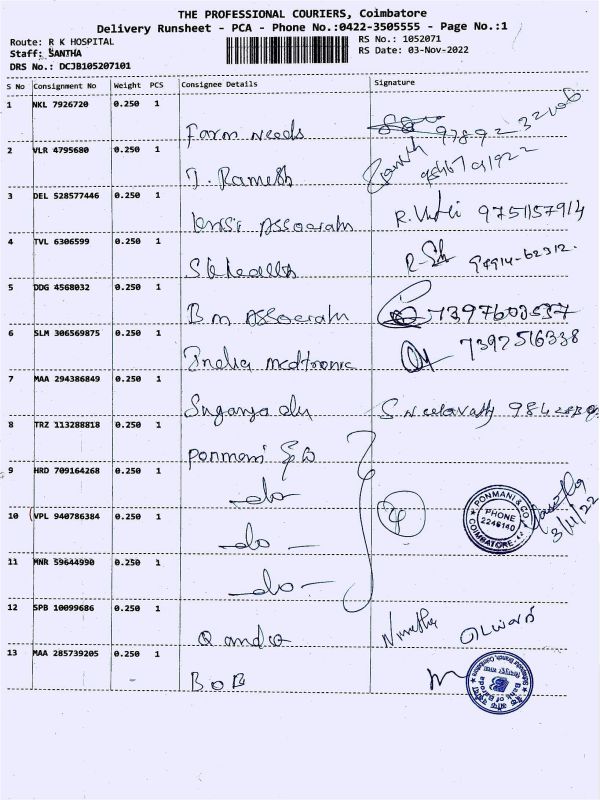 THE PROFESSIONAL COURIERS, Coimbatore
Delivery Runsheet - PCA - Phone No.:0422-3505555 - Page No.:1
Route: R K HOSPITAL
RS No.: 1052071
Staff: SANTHA
RS Date: 03-Nov-2022
DRS No.: DCJB105207101
S No Consignment No Weight PCS Consignee Details Signature
1 NKL 7926720 0.250 1
Farm Needs 97892 32106
2 VLR 4795680 0.250 1
J. Ramesh
3 DEL 528577446 0.250 1
Associats R. 9751157914
4 TVL 6306599 0.250 1
94914-62312.
5 DDG 4568032 0.250 1
Bm Associats 7397603537
6 SLM 306569875 0.250 1
India medtronic 7392516338
7 MAA 294386849 0.250 1
8 TRZ 113288818 0.250 1
Ponmani
9 HRD 709164268 0.250 1
-do-
10 VPL 940786384 0.250 1
-do-
PONMANI & CO
PHONE
2246140
COIMBATORE
3/11/22
11 MNR 59644990 0.250 1
-do-
12 SPB 10099686 0.250 1
13 MAA 285739205 0.250 1
BOB